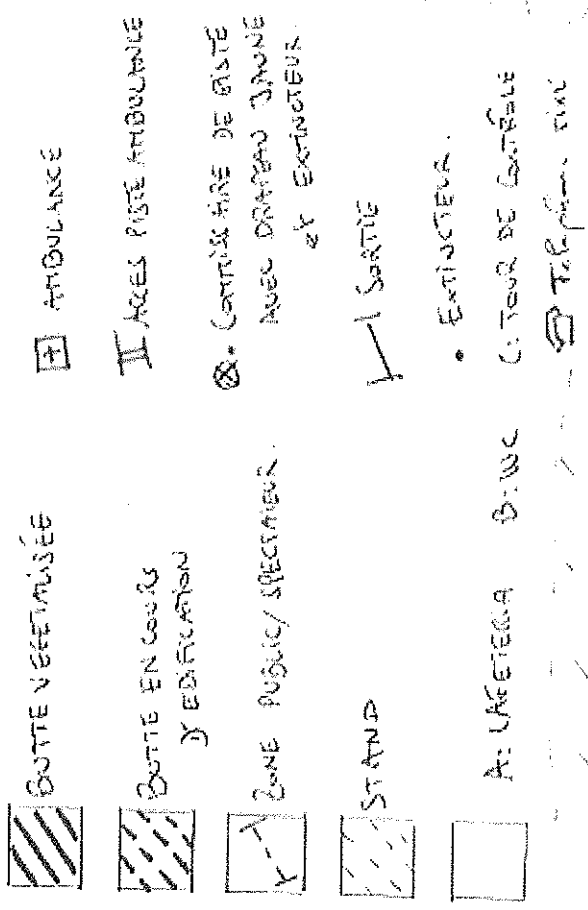 BUTTE VEGETALISÉE
BUTTE EN COURS
D'EDIFICATION
ZONE PUBLIC/SPECTATEUR.
STAND
A: CAFETERIA B: WC C: TOUR DE CONTRÔLE
AMBULANCE
ACCES PISTE AMBULANCE
COMMISSAIRE DE PISTE
AVEC DRAPEAU JAUNE
et EXTINCTEUR.
SORTIE
EXTINCTEUR.
Téléphone fixe